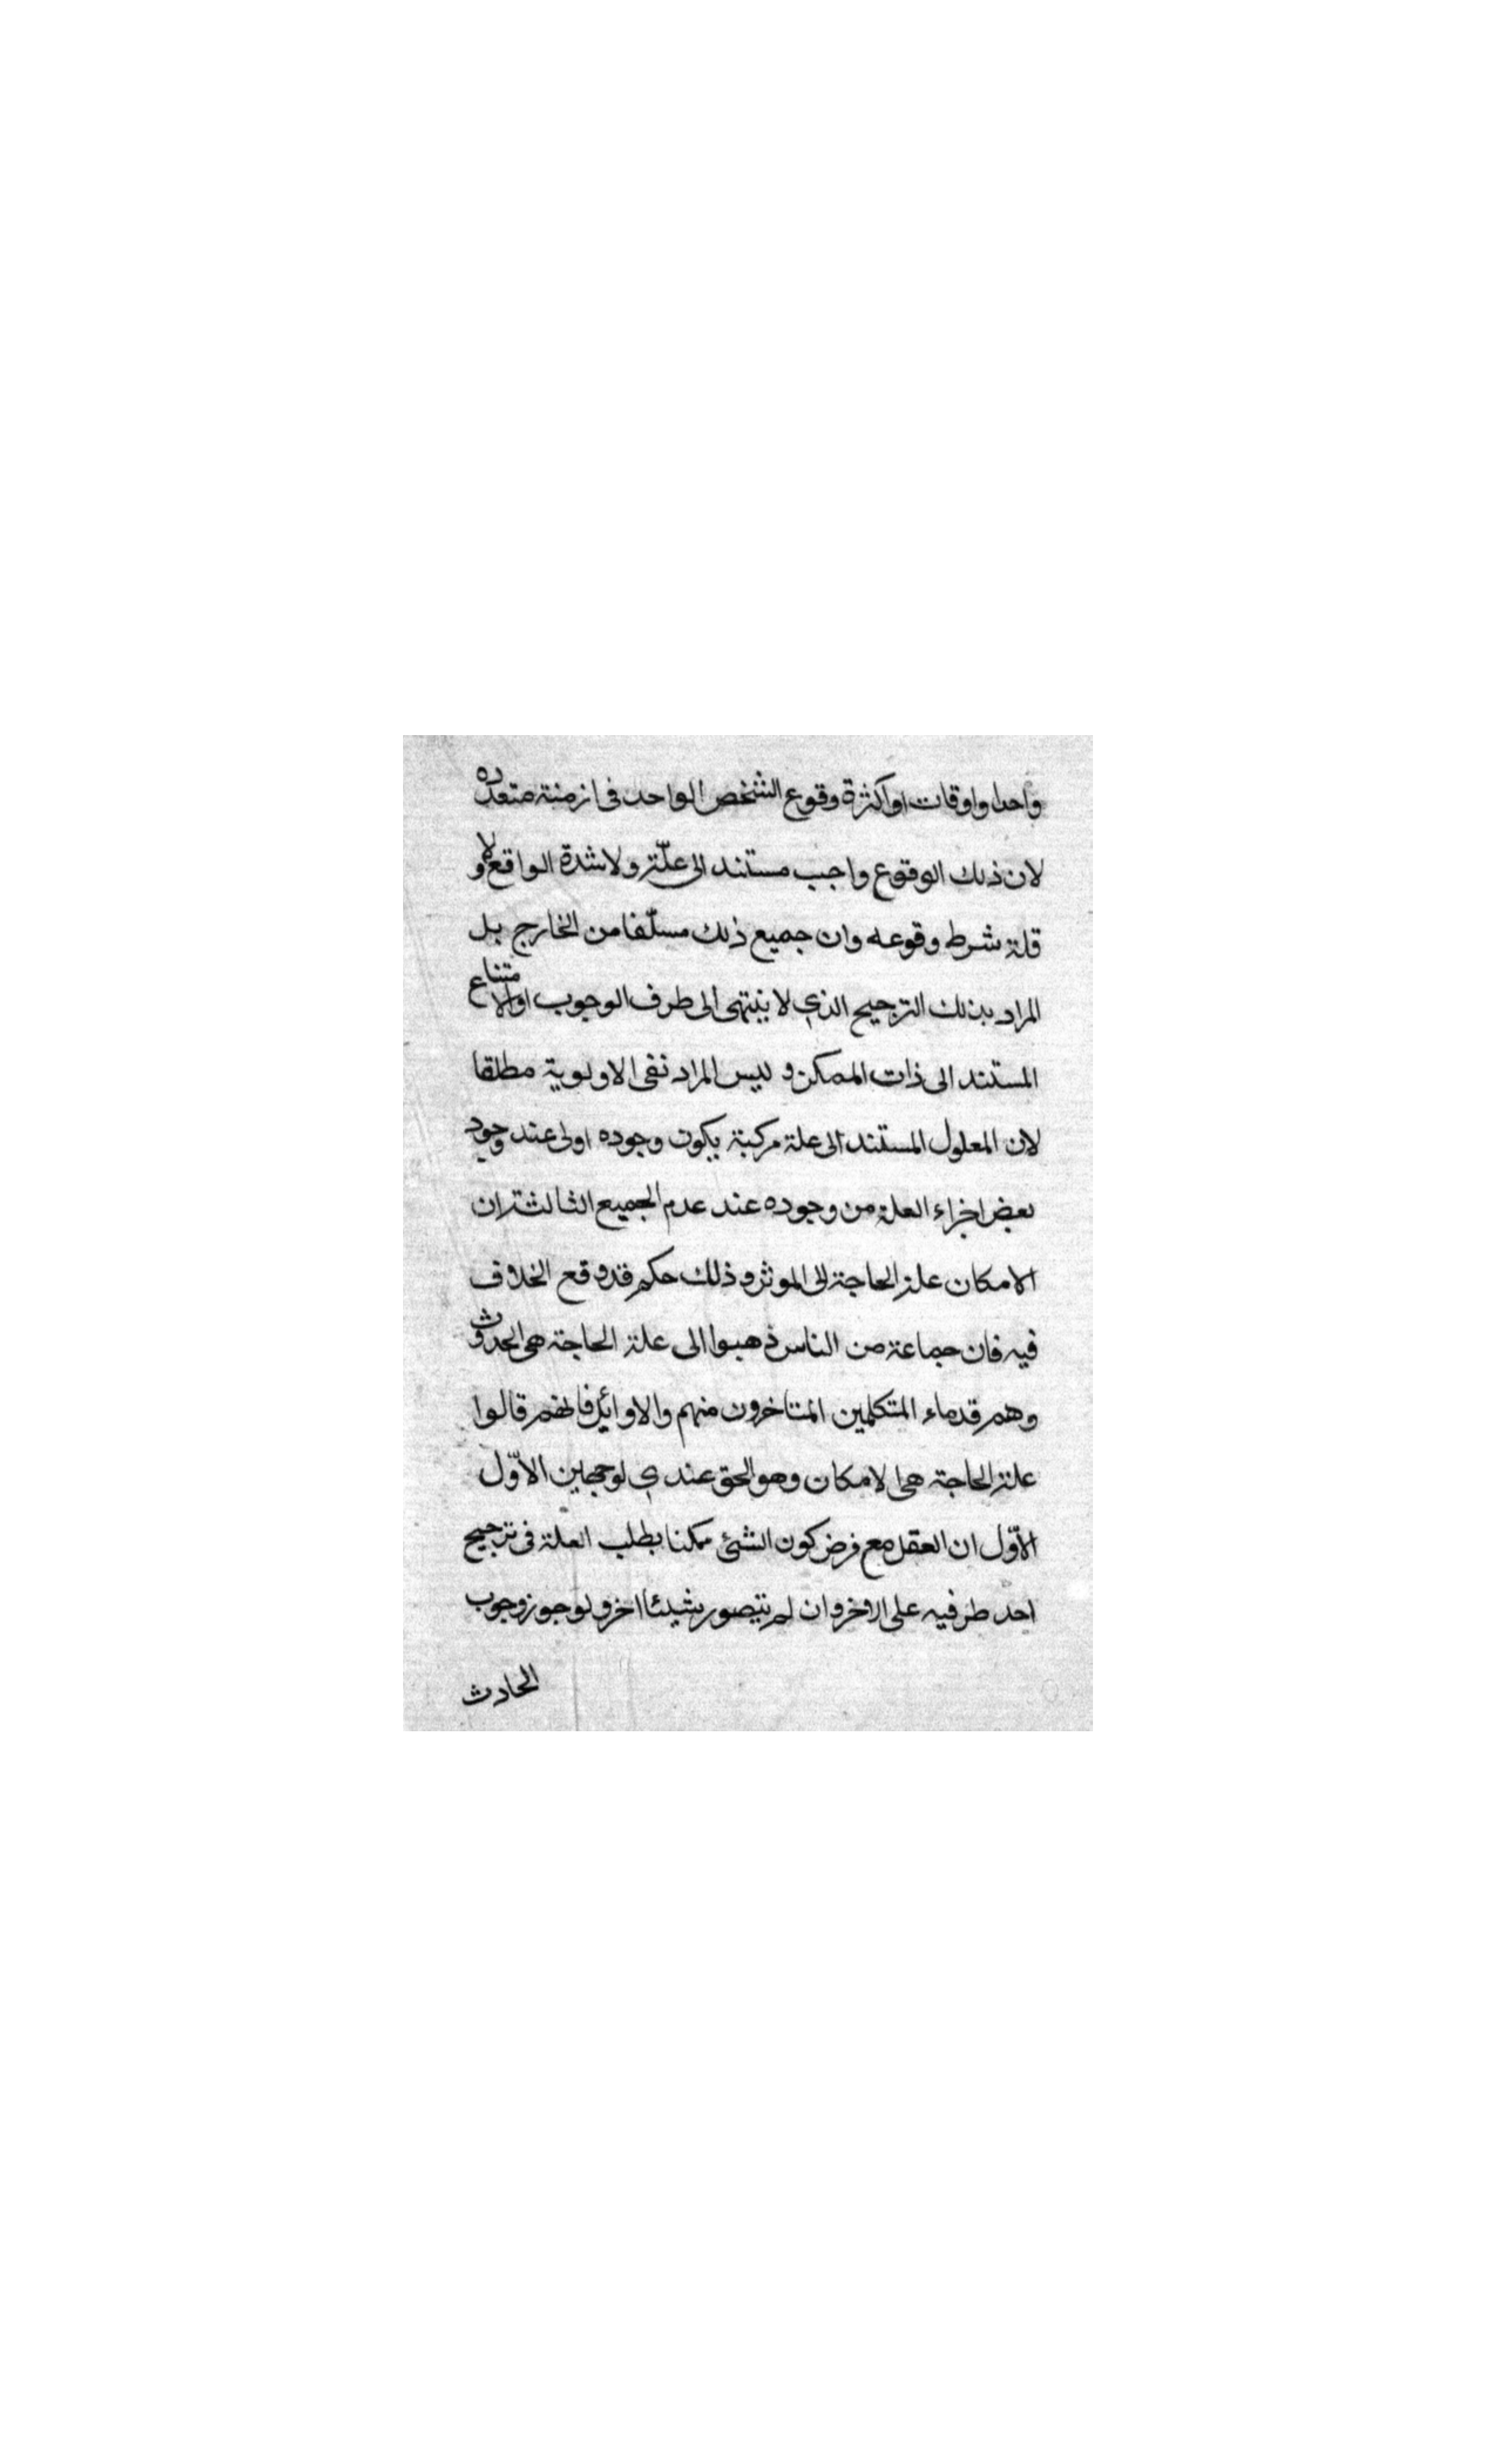 واحدا واوقات او اكثرة وقوع الشخص الواحد فى ازمنة متعدده
لان ذلك الوقوع واجب مستند الى علّة ولا شدة الواقع ولا
قلة شرط وقوعه وان جميع ذلك من الخارج بل
المراد بذلك الترجيح الذي لا ينتهى الى طرف الوجوب او الامتناع
المستند الى ذات الممكن و ليس المراد نفى الاولوية مطلقا
لان المعلول المستند الى علة مركبة يكون وجوده اولى عند وجود
بعض اجزاء العلة من وجوده عند عدم الجميع الثالثة ان
الامكان علة الحاجة الى الموثر و ذلك حكم قد وقع الخلاف
فيه فان جماعة من الناس ذهبوا الى علة الحاجة هى الحدوث
وهم قدماء المتكلمين المتاخرون منهم والاوائل فانهم قالوا
علة الحاجة هى الامكان وهو الحق عندي لوجهين الاوّل
الاوّل ان العقل مع فرض كون الشئ ممكنا يطلب العلة فى ترجيح
احد طرفيه على الاخر وان لم يتصور شيئا اخر ولو جوز وجوب
الحادث